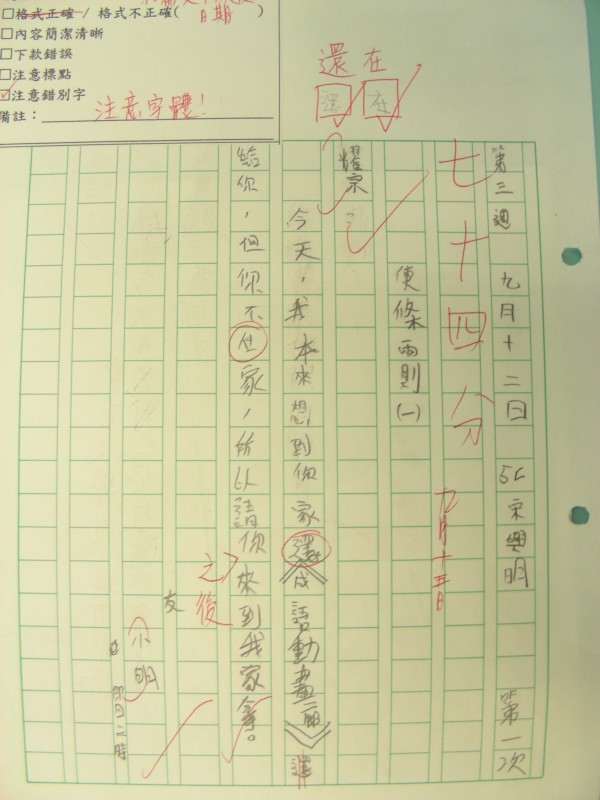 □格式正確 / 格式不正確(日期)
□內容簡潔清晰
□下款錯誤
□注意標點
☑注意錯別字
備註：注意字體！
還在
還在
第三週 九月十二日 5C 宋興明 第一次
七十四分 九月十三日
便條兩則(一)
耀宗：
今天，我本來想到你家還《成語動畫廊》還
給你，但你不在家，所以請你來到我家拿。
之後
友
小明
即日二時